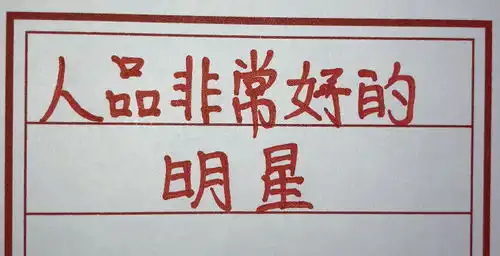 人品非常好的
明星